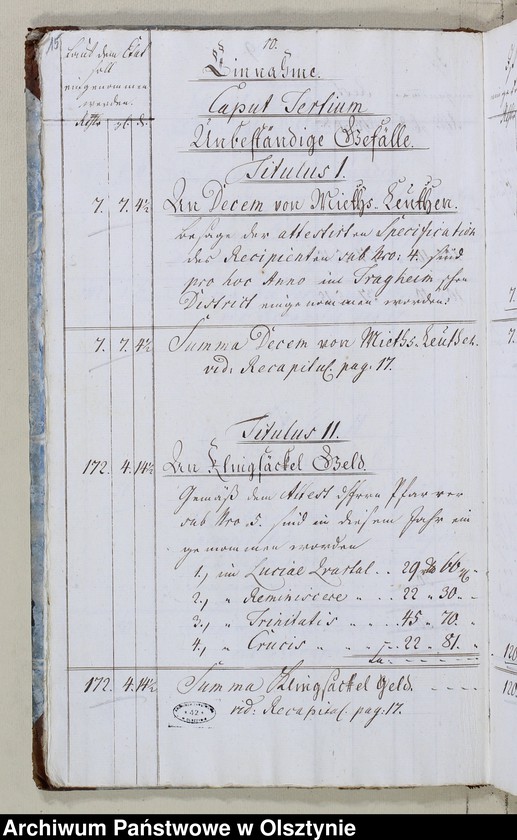 10.
Laut dem Etat
soll
eingenommen
werden.
Rthlr. gl. d.
Einnahme.
Caput Tertium
Unbeständige Gefälle.
Titulus I.
7. 7. 4½ An Decem von Mieths-Leuthen.
besage der attestirten Specification
des Recipienten sub Nro: 4. sind
pro hoc Anno im Tragheimschen
District eingenommen worden:
7. 7. 4½ Summa Decem von Mieths-Leuthen.
vid: Recapitul. pag: 17.
Titulus II.
172. 4. 14½ An Klingsäckel Geld.
Gemäß dem Attest des Herrn Pfarrer
sub Nro. 5. sind in diesem Jahr ein
genommen worden
1., im Luciae Quartal . . 29 66
2., " Reminiscere " . . 22 " 30. -
3., " Trinitatis " . . . 45 " 70. -
4., " Crucis " " . . 22 " 81. -
172. 4. 14½ Summa Klingsäckel Geld.
vid: Recapitul. pag: 17.
42
Archiwum Państwowe w Olsztynie